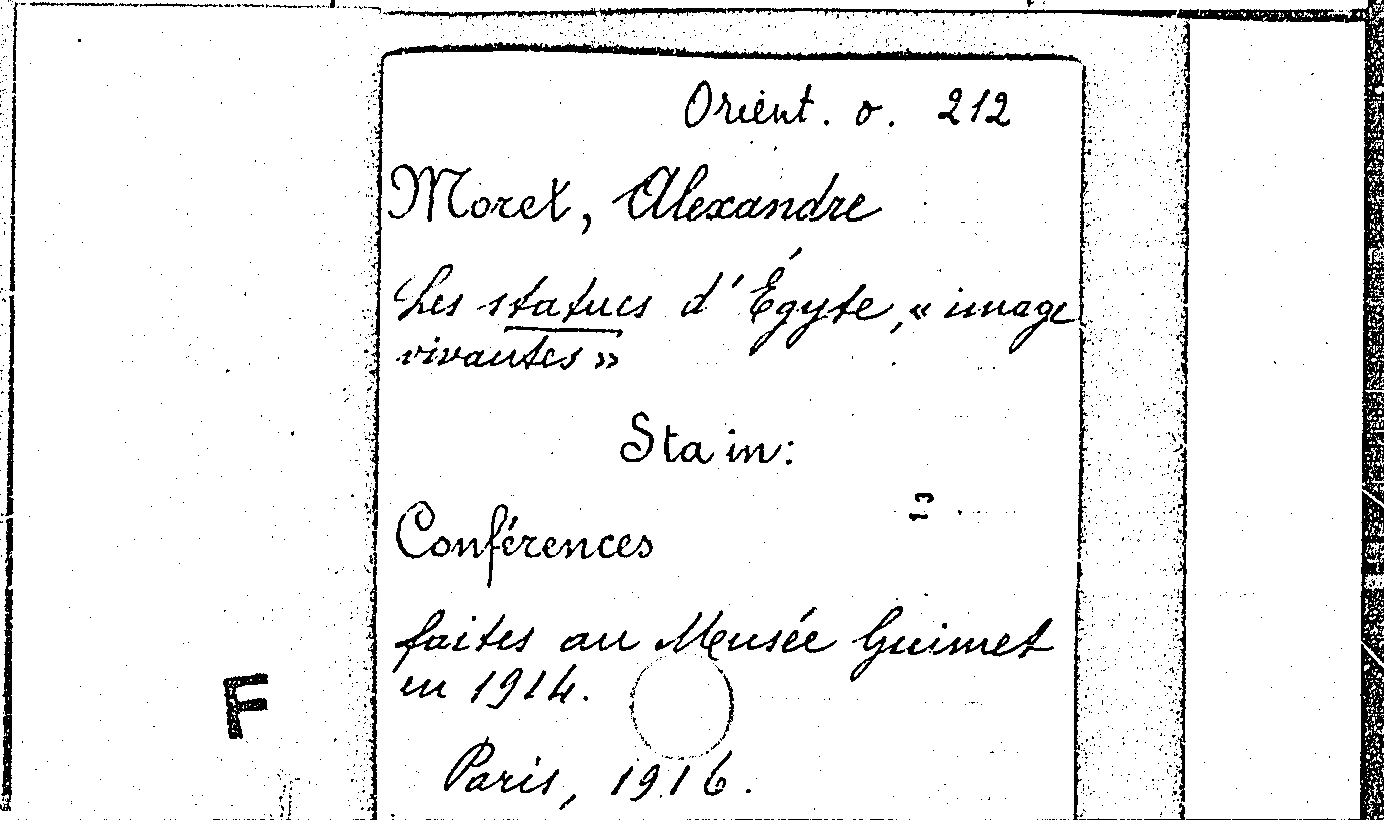 Orient. o. 212
Moret, Alexandre
Les statues d'Égyte, « image
vivantes »
Sta in:
Conférences
faites au Musée Guimet
en 1914.
F
Paris, 1916.